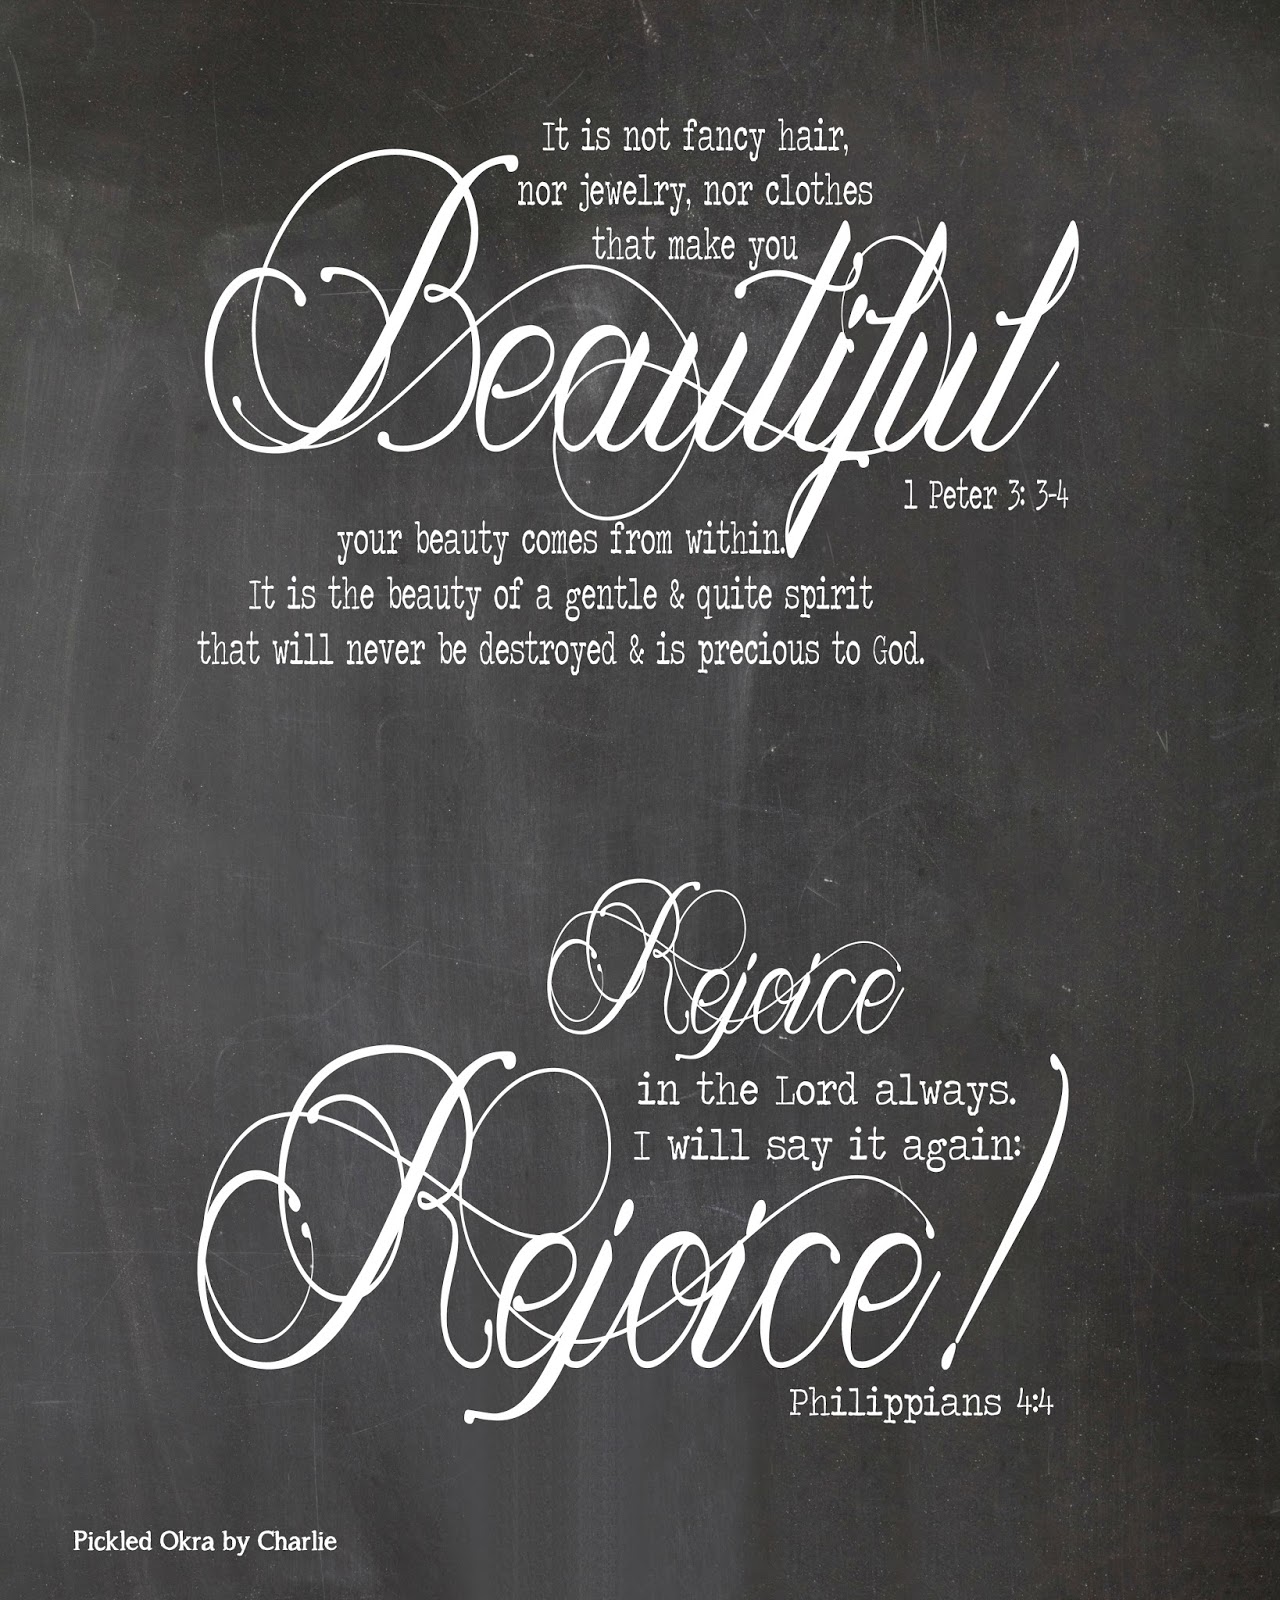 It is not fancy hair,
nor jewelry, nor clothes
that make you
Beautiful
1 Peter 3: 3-4
your beauty comes from within.
It is the beauty of a gentle & quite spirit
that will never be destroyed & is precious to God.
Rejoice
in the Lord always.
I will say it again:
Rejoice!
Philippians 4:4
Pickled Okra by Charlie